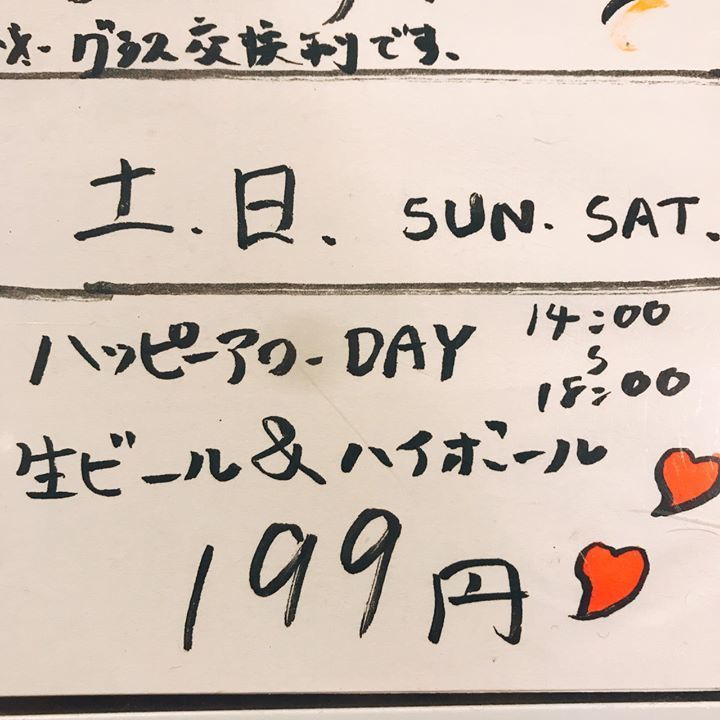 グラス交換制です。
土.日. SUN. SAT.
ハッピーアワーDAY 14:00
〜
18:00
生ビール&ハイボール
199円